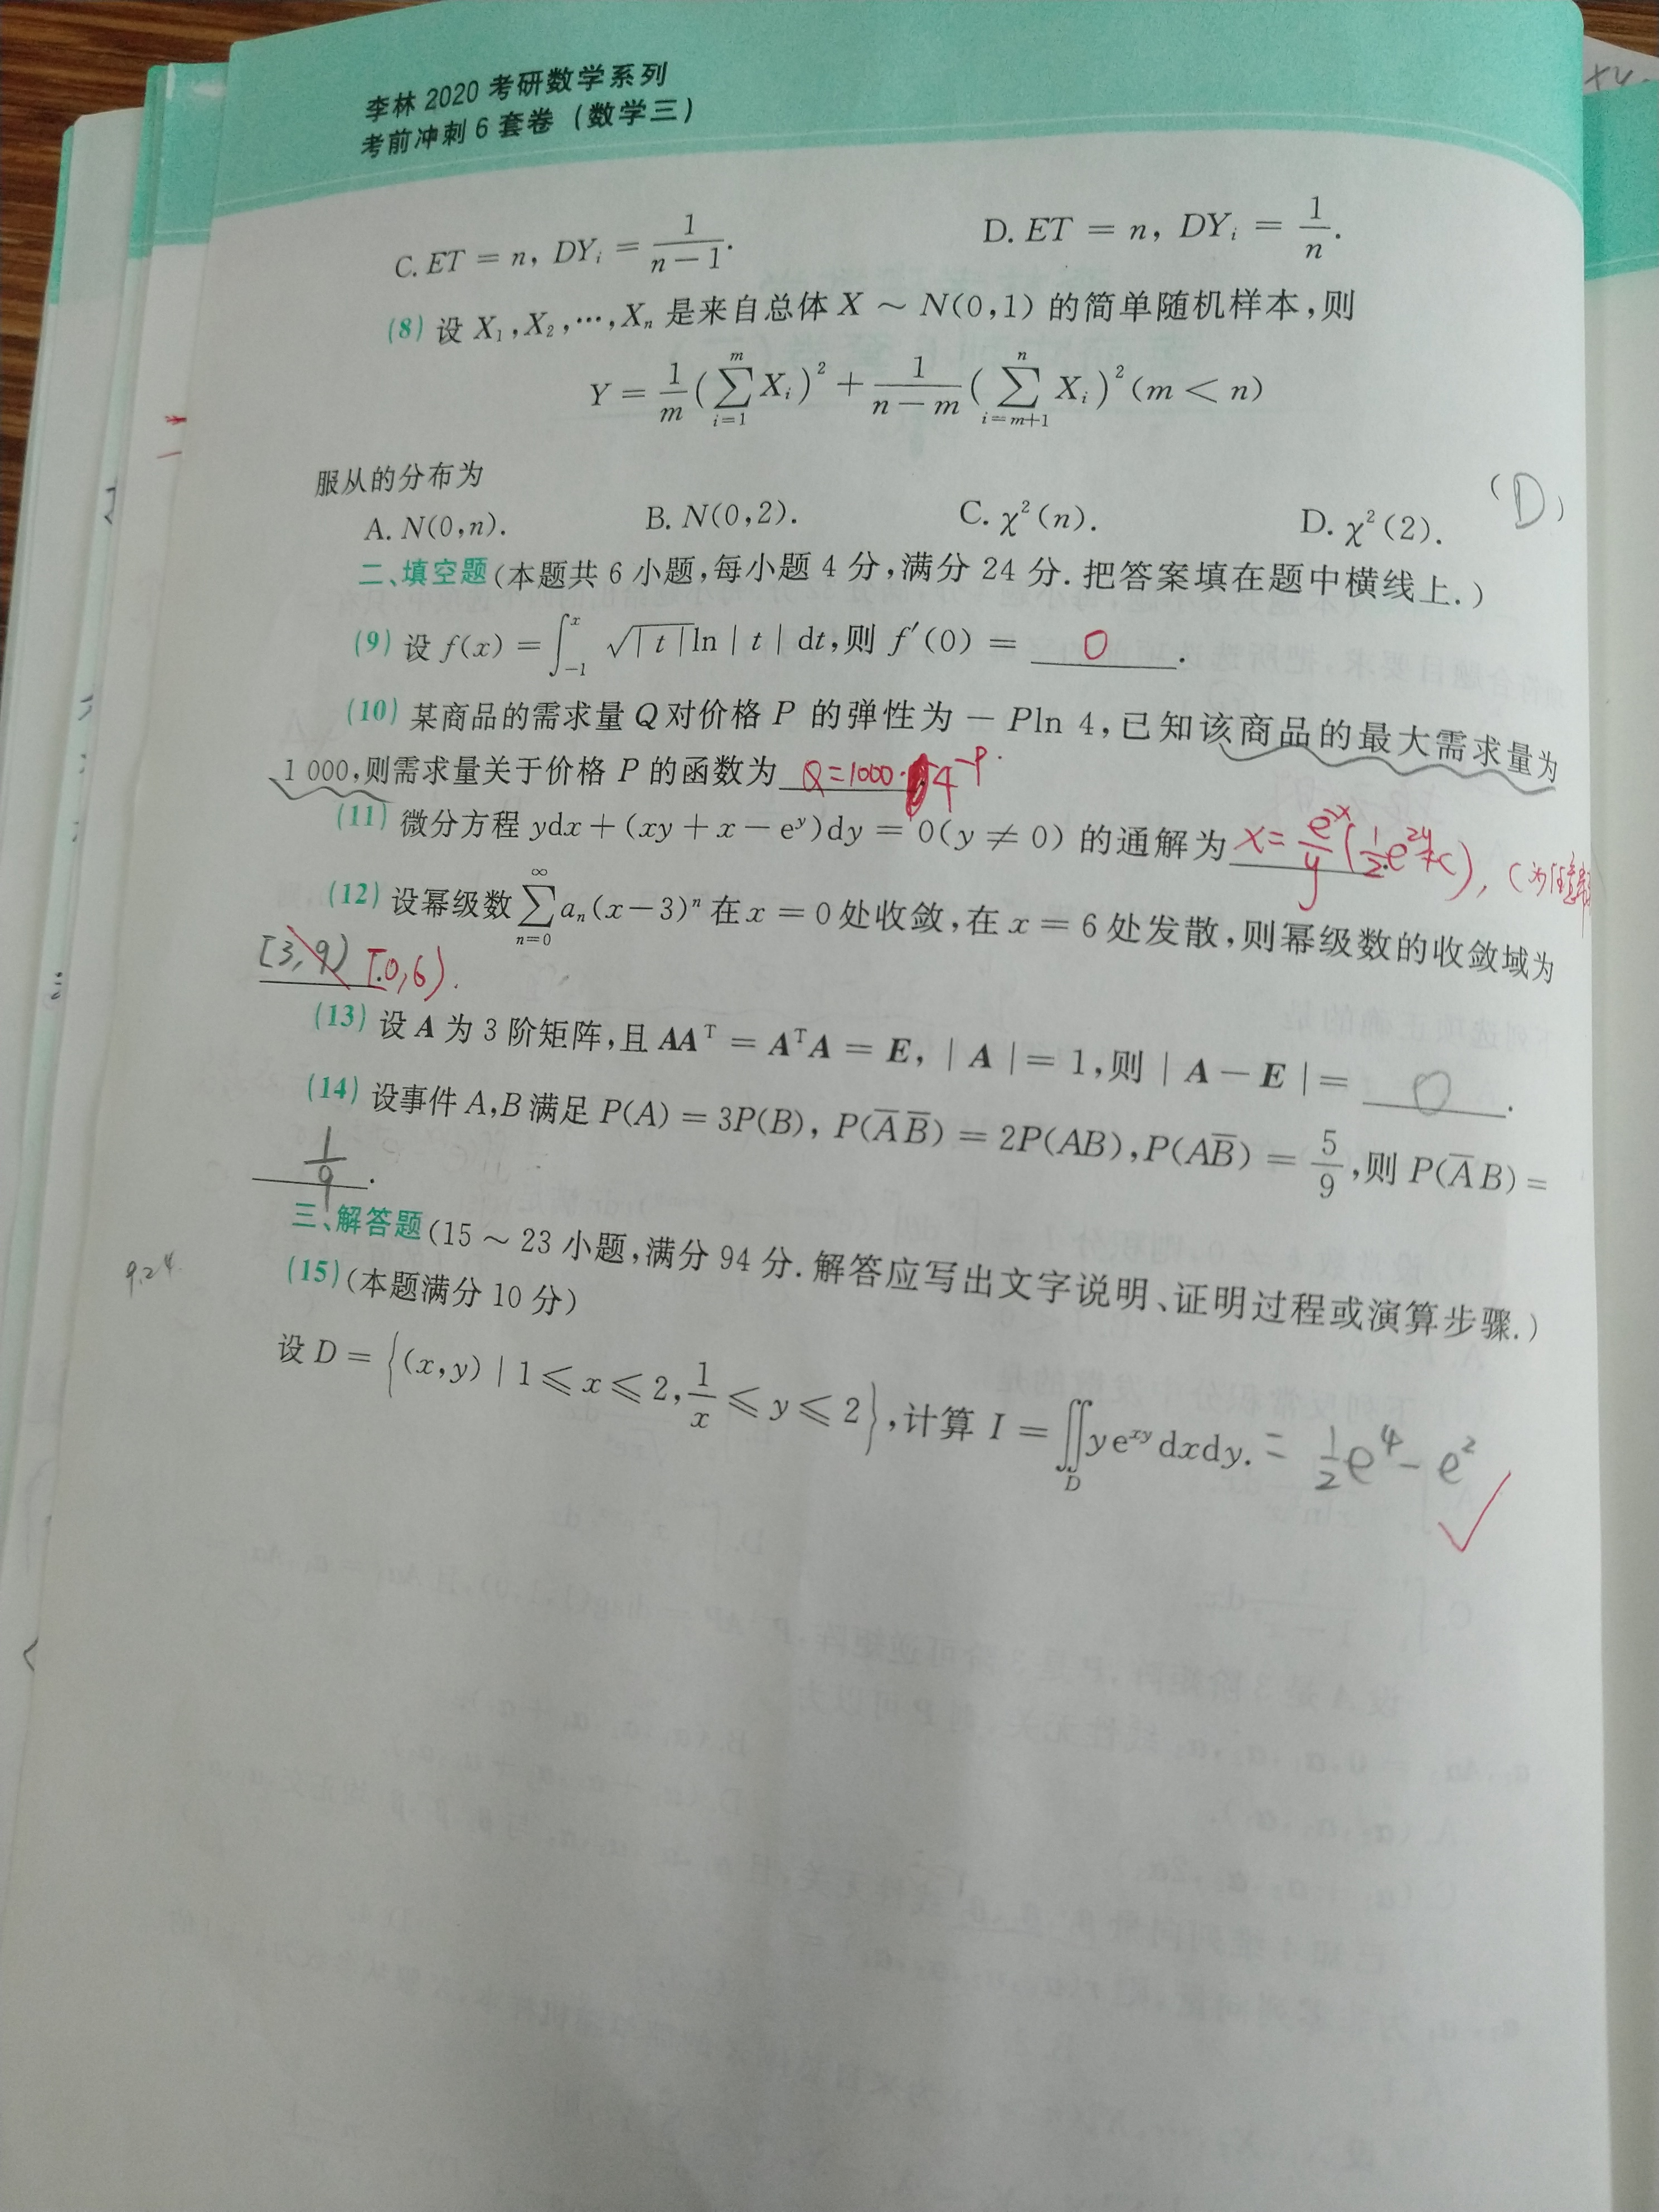 李林 2020 考研数学系列
考前冲刺 6 套卷（数学三）
C. ET = n, DY_i = \frac{1}{n-1}.
D. ET = n, DY_i = \frac{1}{n}.
(8) 设 X_1,X_2,…,X_n 是来自总体 X ～ N(0,1) 的简单随机样本,则
Y = \frac{1}{m}(\sum_{i=1}^{m} X_i)^2 + \frac{1}{n-m}(\sum_{i=m+1}^{n} X_i)^2 (m < n)
服从的分布为 (D)
A. N(0,n). B. N(0,2). C. χ^2(n). D. χ^2(2).
二、填空题(本题共 6 小题,每小题 4 分,满分 24 分. 把答案填在题中横线上.)
(9) 设 f(x) = \int_{-1}^{x} \sqrt{|t|} ln|t| dt,则 f′(0) = 0 .
(10) 某商品的需求量 Q 对价格 P 的弹性为 − Pln 4,已知该商品的最大需求量为
1 000,则需求量关于价格 P 的函数为 Q=1000·4^{-P}.
(11) 微分方程 ydx + (xy + x − e^y)dy = 0(y ≠ 0) 的通解为
(12) 设幂级数 \sum_{n=0}^{∞} a_n(x−3)^n 在 x = 0 处收敛,在 x = 6 处发散,则幂级数的收敛域为
[3,9) [0,6).
(13) 设 A 为 3 阶矩阵,且 AA^T = A^TA = E, |A| = 1,则 |A − E| = 0 .
(14) 设事件 A,B 满足 P(A) = 3P(B), P(\overline{A}\,\overline{B}) = 2P(AB), P(A\overline{B}) = \frac{5}{9},则 P(\overline{A}B) =
\frac{1}{9} .
三、解答题(15 ～ 23 小题,满分 94 分. 解答应写出文字说明、证明过程或演算步骤.)
9.24.
(15)(本题满分 10 分)
设 D = {(x,y) | 1 ⩽ x ⩽ 2, \frac{1}{x} ⩽ y ⩽ 2},计算 I = \iint_D ye^{xy} dxdy. = \frac{1}{2}e^4 − e^2